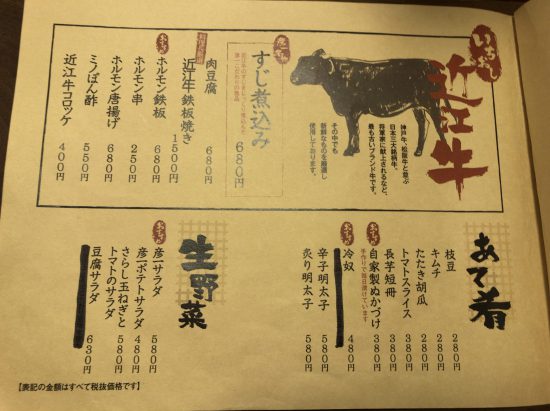 いちおし
近江牛
神戸牛、松阪牛と並ぶ
日本三大銘柄牛。
将軍家に献上されるなど、
最も古いブランド牛です。
その中でも
新鮮なものを厳選し
使用しております。
すじ煮込み 680円
肉豆腐 680円
近江牛鉄板焼き 1500円
おすすめ
ホルモン鉄板 680円
ホルモン串 250円
ホルモン唐揚げ 680円
ミノぽん酢 550円
近江牛コロッケ 400円
あて肴
枝豆 280円
キムチ 280円
たたき胡瓜 280円
トマトスライス 380円
長芋短冊 380円
おすすめ
自家製ぬかづけ 380円
手作りで毎日漬けています
おすすめ
冷奴 480円
辛子明太子 580円
炙り明太子 580円
生野菜
おすすめ
彦一サラダ 580円
彦一ポテトサラダ 480円
さらし玉ねぎと
トマトのサラダ 580円
豆腐サラダ 630円
【表記の金額はすべて税抜価格です】